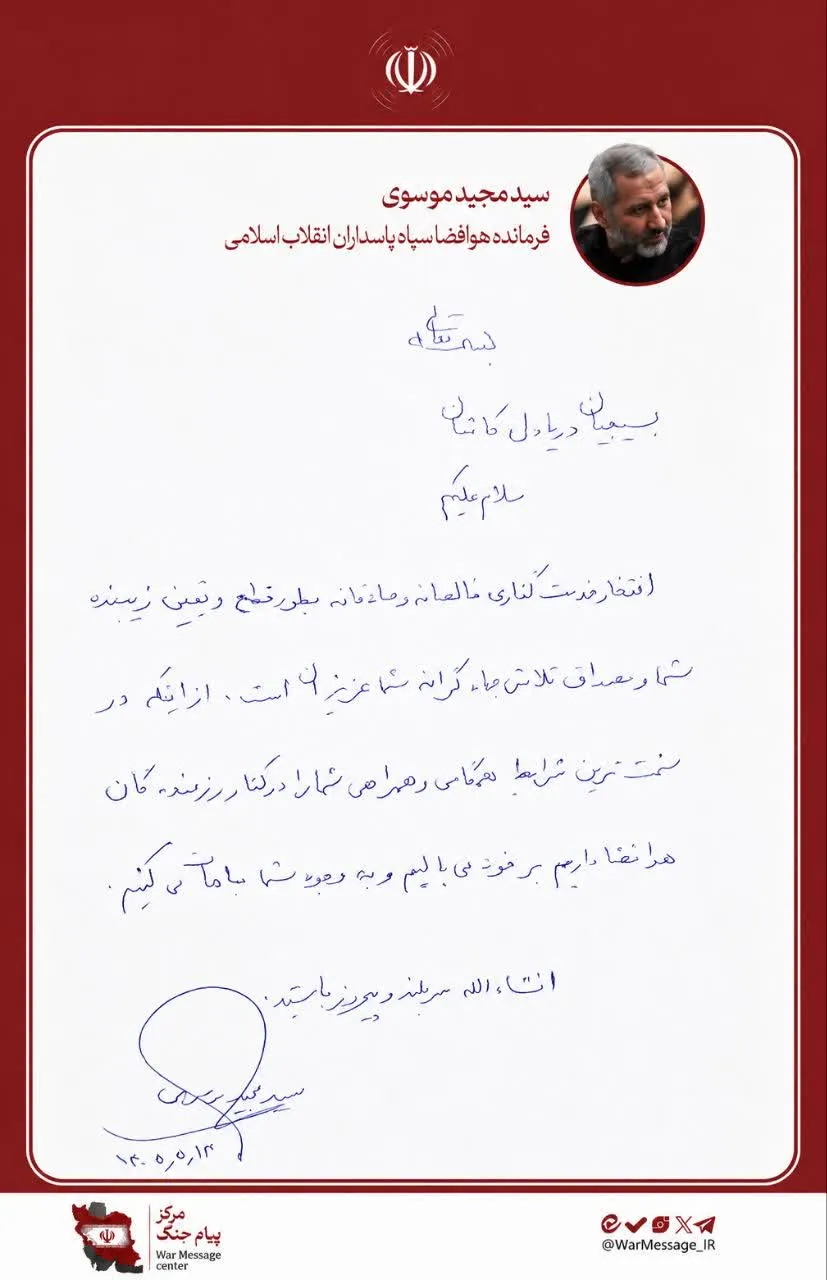 سید مجید موسوی
فرمانده هوافضا سپاه پاسداران انقلاب اسلامی
بسمه تعالی
بسیجیان دریادل کاشان
سلام علیکم
افتخار خدمت گذاری خالصانه و صادقانه بطور قطع و یقین زیبنده
شما و مصداق تلاش جهادگرانه شما عزیزان است. از اینکه در
سخت ترین شرایط همگامی و همراهی شما را در کنار رزمندگان
هوافضا داریم بر خود می بالیم و به وجود شما مباهات می کنیم.
انشاءالله سربلند و پیروز باشید.
سید مجید موسوی
۱۴۰۵٫۵٫۱۳
مرکز
پیام جنگ
War Message
center
@WarMessage_IR